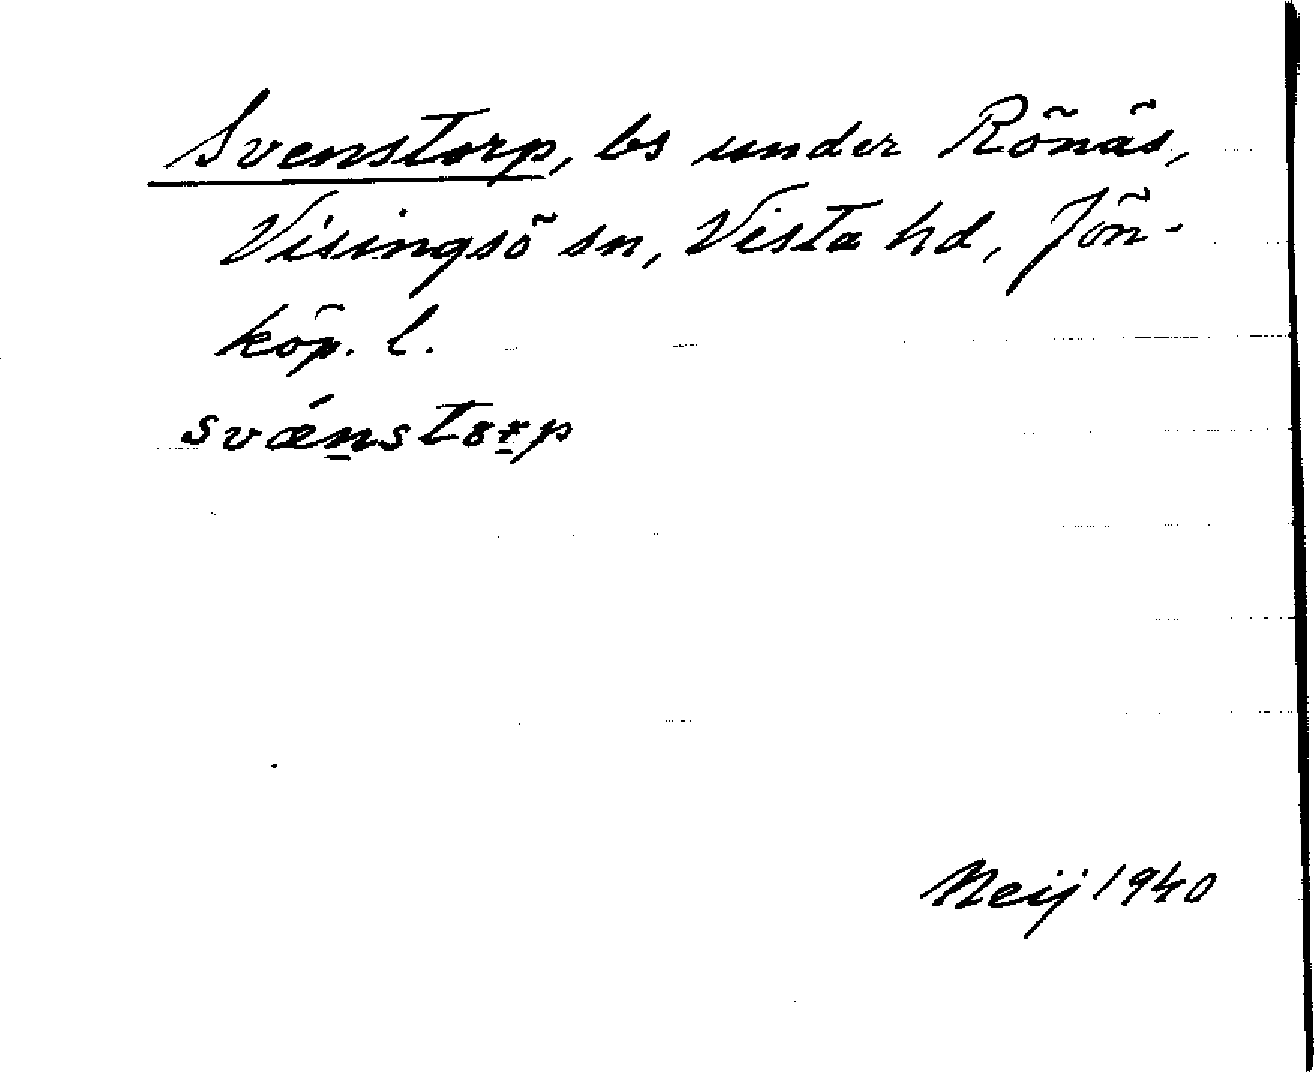 Svenstorp, bs under Rönäs,
Visingsö sn, Vista hd, Jön-
köp. l.
svǽn̲storp
Neij 1940